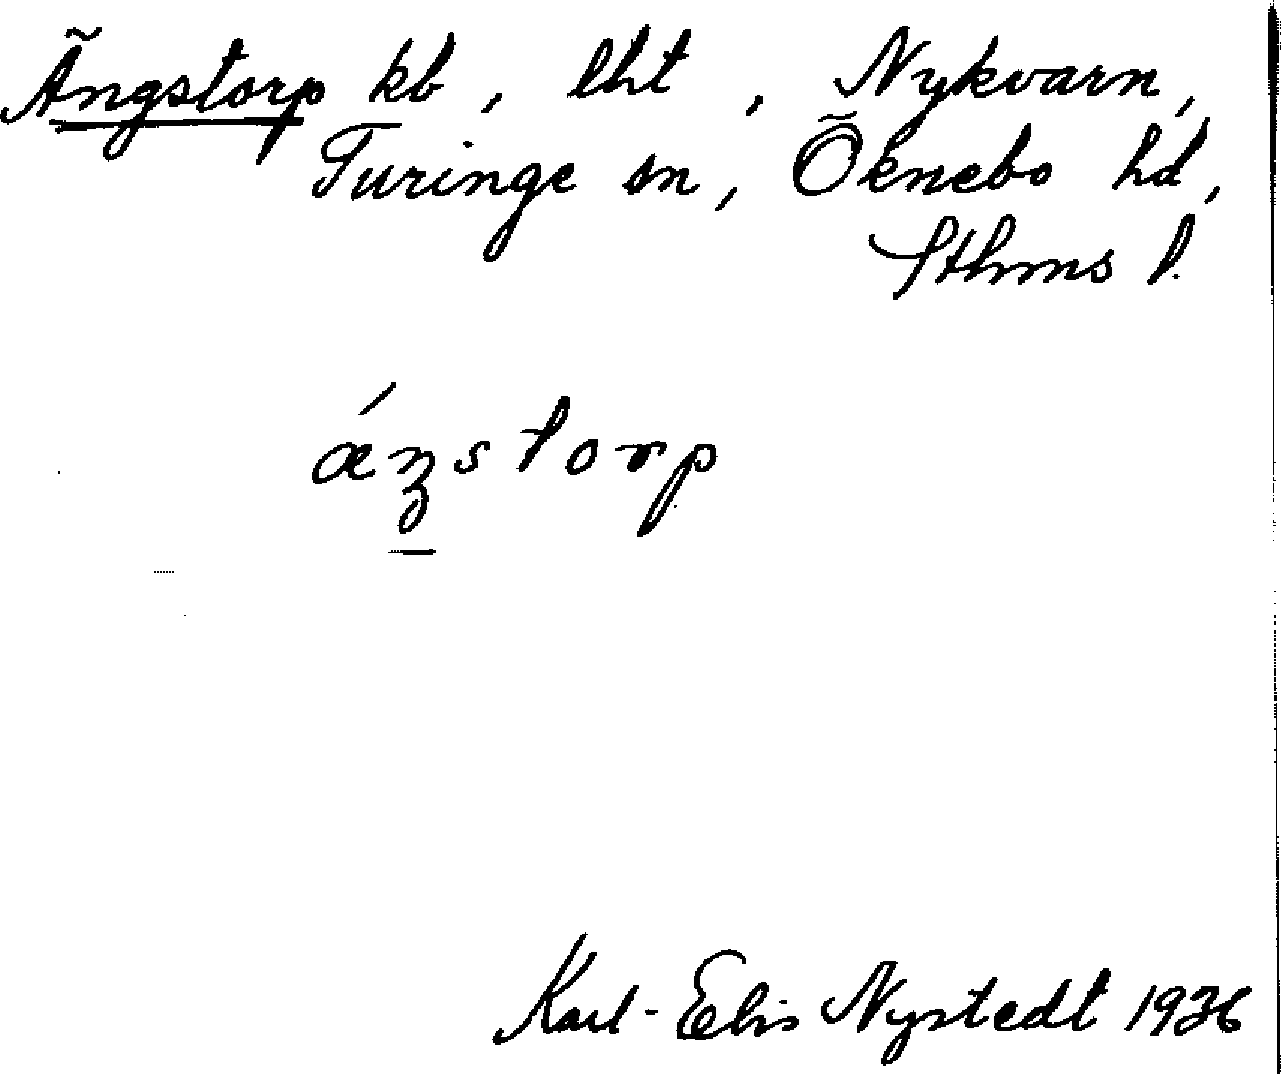 Ängstorp kb, lht, Nykvarn,
Turinge sn, Öknebo hd,
Sthms l.
ǽŋstorp
Karl-Elis Nystedt 1936